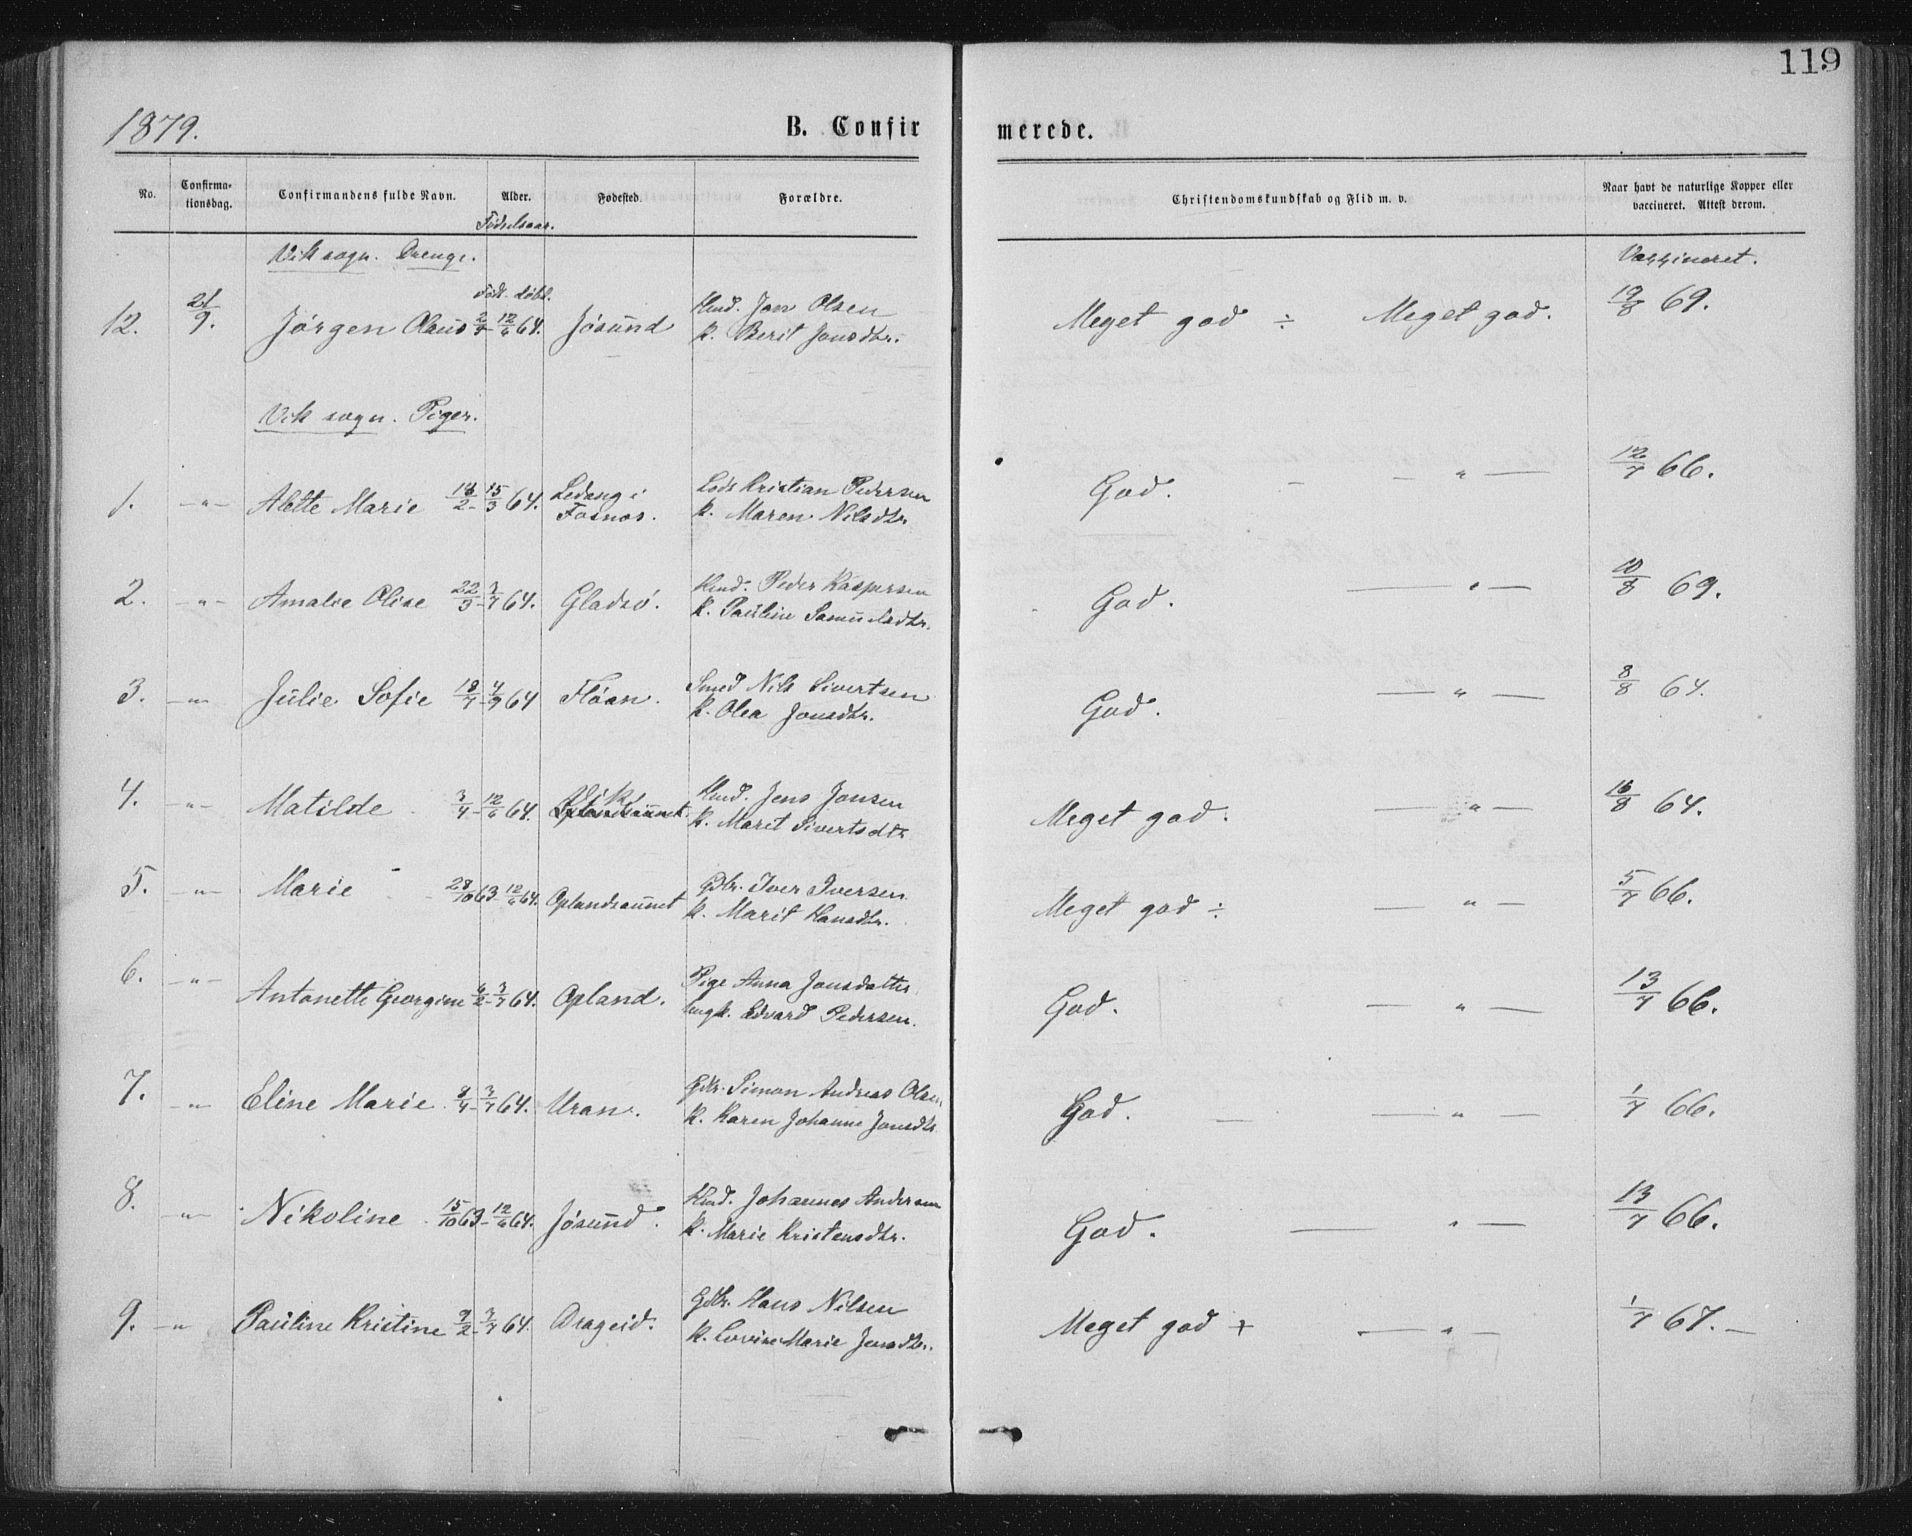 119
1879. B. Confirmerede.
No. Confirmationsdag. Confirmandens fulde Navn. Alder. Fødested. Forældre. Christendomskundskab og Flid m. v. Naar havt de naturlige Kopper eller vaccineret. Attest derom.
Fødselsaar.
Vik sogn. Drenge. Vaccineret.
Født. døbt.
12. 21/9. Jørgen Olaus 2/4 - 12/6 64. Jøsund Hmd. Jon Olsen Meget god ÷ Meget god. 19/8 69.
k. Berit Jonsdtr.
Vik sogn. Piger.
1. -„- Alette Marie 18/2 - 15/3 64. Ledang i Lods Kristian Pedersen God. - — „ — 12/7 66.
Fosnæs. k. Maren Nilsdtr.
2. -„- Amalie Oline 22/5 - 3/7 64. Gladsø. Hmd. Peder Kaspersen God. — „ — 10/8 69.
k. Pauline Samuelsdtr.
3. -„- Julie Sofie 18/7 - 4/9 64 Fløan. Smed Nils Sivertsen God. — „ — 8/8 64.
k. Olea Jonsdtr.
4. -„- Matilde 3/4 - 12/6 64. Vik Hmd. Jens Jonsen Meget god. — „ — 16/8 64.
k. Marit Sivertsdtr
5. -„- Marie 28/10 63 12/6 64. Oplandsaunet Gbr. Iver Iversen Meget god ÷ — „ — 5/7 66.
k. Marit Hansdtr.
6. -„- Antonette Georgine 4/2 - 3/7 64. Opland. Pige Anna Jonsdatter God. — „ — 13/7 66.
Ungk. Edvard Pedersen.
7. -„- Eline Marie 8/4 - 3/7 64. Uran. Gbr. Simon Andreas Olsen God. — — „ — 1/7 66.
k. Karen Johanne Jonsdtr
8. -„- Nikoline 15/10 63 - 12/6 64. Jøsund. Hmd. Johannes Andersen God. — „ — 13/7 66.
k. Marie Kristensdtr.
9. -„- Pauline Kristine 9/2 - 3/7 64. Drageid. Gbr. Hans Nilsen Meget god + — „ — 1/7 67. —
k. Lovise Marie Jensdtr.